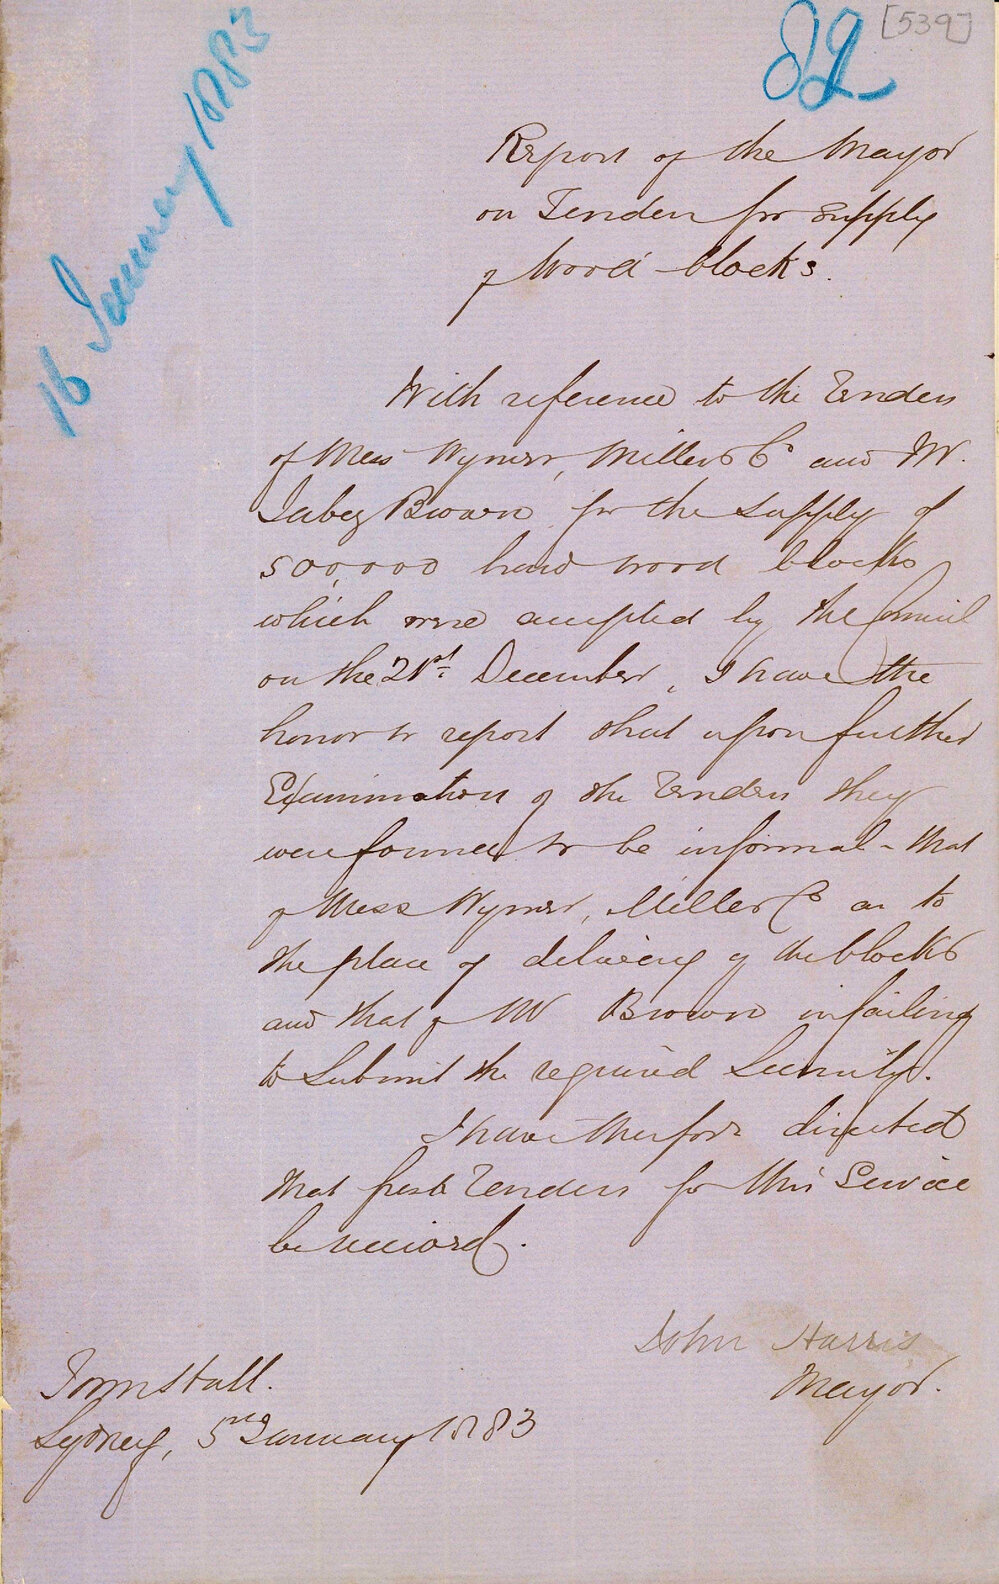 [539]
82
16 January 1883
Report of the Mayor
on Tenders for supply
of Wood-blocks.
With reference to the Tenders
of Mess Wyner, Miller & Co and Mr.
Jabez Brown for the supply of
500,000 hard wood blocks
which were accepted by the Council
on the 21st December, I have the
honor to report that upon further
Examination of the Tenders they
were found to be informal - that
of Mess Wyner, Miller & Co as to
the place of delivery of the blocks
and that of Mr Brown in failing
to Submit the required Security.
I have therefore directed
that fresh Tenders for this Service
be received.
John Harris
Mayor.
Town Hall.
Sydney, January 1883